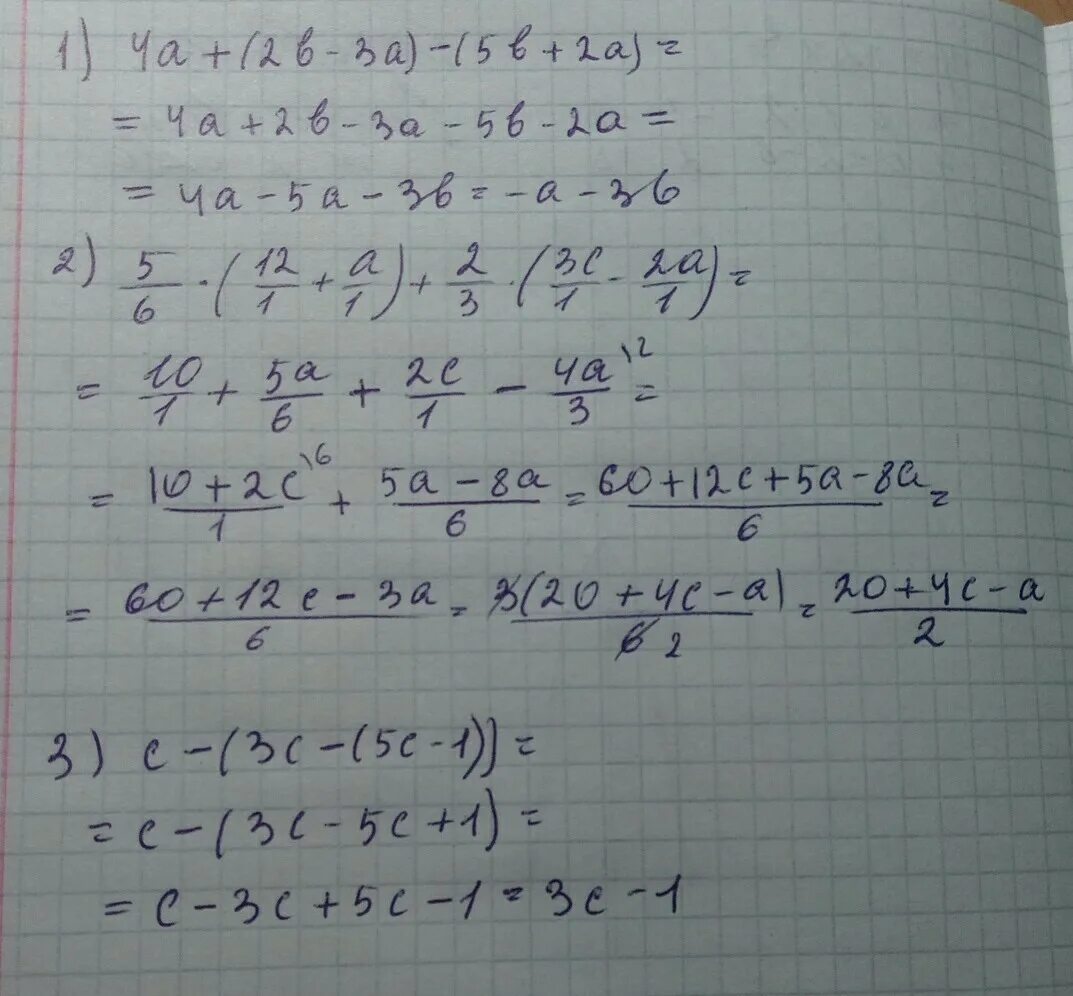 1) 4a + (2в - 3a) - (5в + 2a) =
= 4a + 2в - 3a - 5в - 2a =
= 4a - 5a - 3в = -a - 3в
2) 5/6 · (12/1 + a/1) + 2/3 · (3c/1 - 2a/1) =
= 10/1 + 5a/6 + 2c/1 - 4a/3 \2 =
= 10 + 2c/1 \6 + 5a - 8a/6 = 60 + 12c + 5a - 8a/6 =
= 60 + 12c - 3a/6 = 3(20 + 4c - a)/6 2 = 20 + 4c - a/2
3) c - (3c - (5c - 1)) =
= c - (3c - 5c + 1) =
= c - 3c + 5c - 1 = 3c - 1